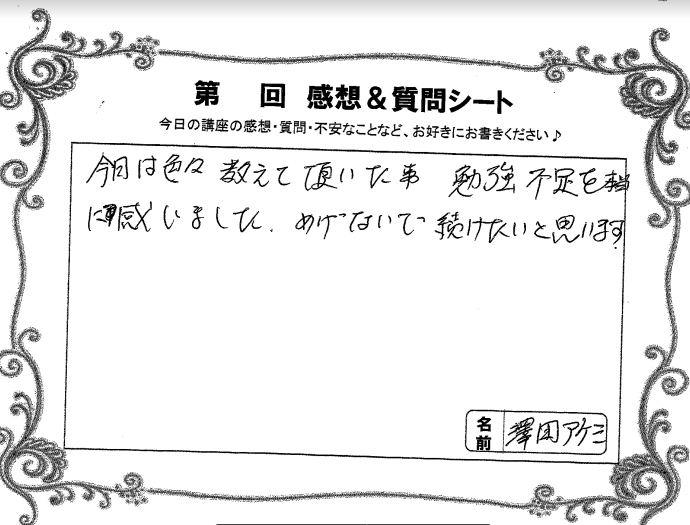 第　回 感想＆質問シート
今日の講座の感想・質問・不安なことなど、お好きにお書きください♪
今日は色々 教えて頂いた事 勉強不足を本当
に感じました。めげないで続けたいと思います。
名前 澤田アケミ